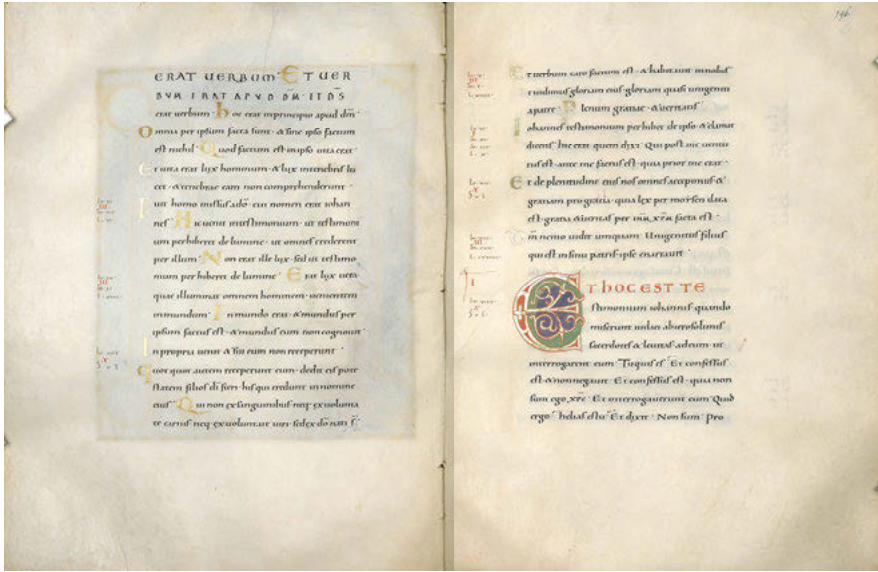 ERAT UERBUM · ET UER
BUM ERAT APUD DM̅ · ET DS̅
erat uerbum · hoc erat inprincipio apud dm̅ ·
Omnia per ipsum facta sunt · & sine ipso factum
est nichil · Quod factum est inipso uita erat ·
Et uita erat lux hominum · & lux intenebris lu
cet · & tenebrae eam non comprehenderunt ·
Fuit homo missus ado̅ · cui nomen erat iohan
nes · Hic uenit intestimonium · ut testimoni
um perhiberet delumine · ut omnes crederent
per illum · Non erat ille lux · sed ut testimo
nium perhiberet de lumine · Erat lux uera ·
quae illuminat omnem hominem · uenientem
inmundum · In mundo erat · & mundus per
ipsum factus est · & mundus eum non cognouit ·
In propria uenit · & sui eum non receperunt ·
Quotquot autem receperunt eum · dedit eis pote
statem filios di̅ fieri · his qui credunt innomine
eius · Qui non exsanguinibus neq · exuolunta
te carnis neq · exuoluntate uiri · sed exdo̅ nati s̅ ·
196
Et uerbum caro factum est · & habitauit innobis ·
& uidimus gloriam eius · gloriam quasi unigeniti
apatre · Plenum gratiae · & ueritatis ·
Iohannes testimonium perhibet de ipso · & clamat
dicens · hic erat quem dixi · Qui post me uentu
rus est · ante me factus est · quia prior me erat ·
Et de plenitudine eius nos omnes accepimus · &
gratiam progratia · quia lex per moysen data
est · gratia & ueritas per ihm̅ xpm̅ facta est ·
Dm̅ nemo uidit umquam · Unigenitus filius
qui est insinu patris · ipse enarrauit ·
ET HOC EST TE
stimonium iohannis · quando
miserunt iudaei abierosolimis
sacerdotes & leuitas adeum · ut
interrogarent eum · Tu quis es · Et confessus
est · & nonnegauit · Et confessus est · quia non
sum ego xpc̅ · Et interrogauerunt eum · Quid
ergo · helias es tu · Et dixit · Non sum · Pro